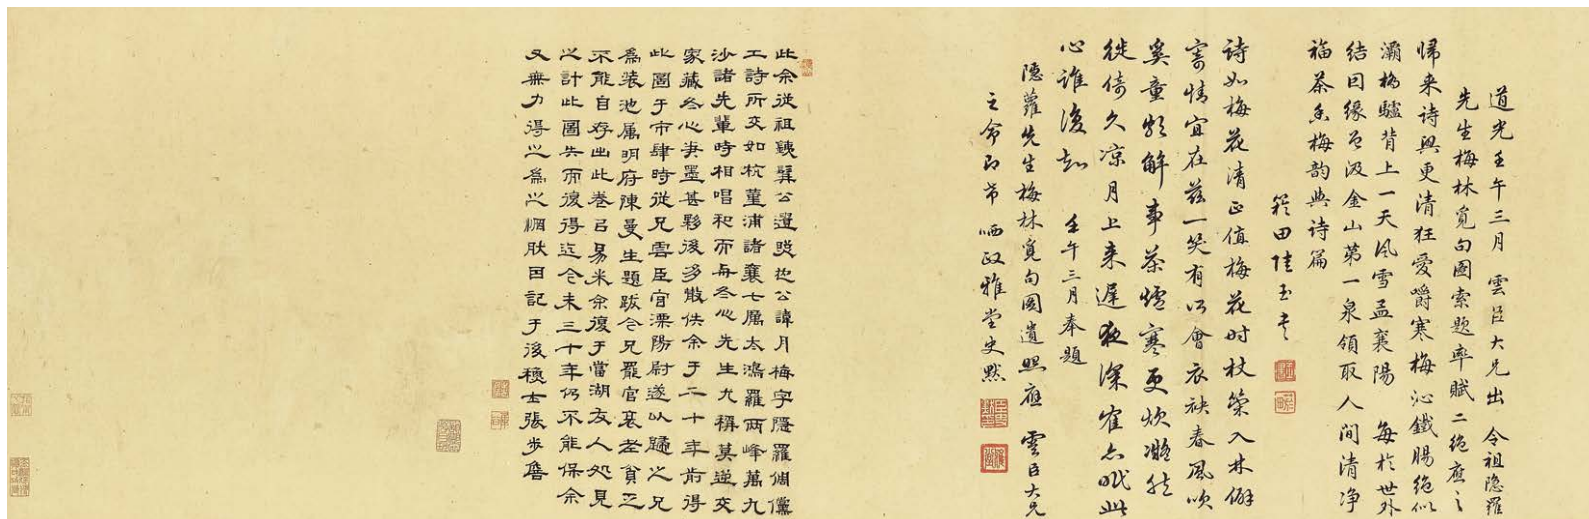 道光壬午三月 雲臣大兄出 令祖隱羅
先生梅林覓句圖索題率賦二絕應之
歸來詩興更清狂愛嚼寒梅沁鐵腸絕似
灞橋驢背上一天風雪孟襄陽 每於世外
結因緣又汲金山第一泉領取人間清净
福茶香梅韵與詩篇
篛田陸玉書
詩如梅花清正值梅花时杖策入林僻
寄情宜在兹一笑有所會衣袂春風吹
奚童頗解事茶爐寒更炊凝然
徙倚久凉月上来遲夜深雀亦眠此
心谁復知 壬午三月奉題
隱蘿先生梅林覓句圖遺照應 雲臣大兄
之命即希 哂政雅堂史默
此余從祖鐵巽公遺照也公諱月梅字隱羅倜儻
工詩所交如杭董浦諸襄七厲太鴻羅兩峰萬九
沙諸先輩時相唱和而與冬心先生尤稱莫逆交
家藏冬心筆墨甚夥後多散佚余于二十年前得
此圖于市肆時從兄雲臣官溧陽尉遂以歸之兄
為裝池屬明府陳曼生題跋今兄罷官甚老貧乏
不能自存出此卷吕易米余復于當湖友人処見
之計此圖失而復得迄今未三十年仍不能保余
又無力得之為之惘肰因記于後穗士張步廛